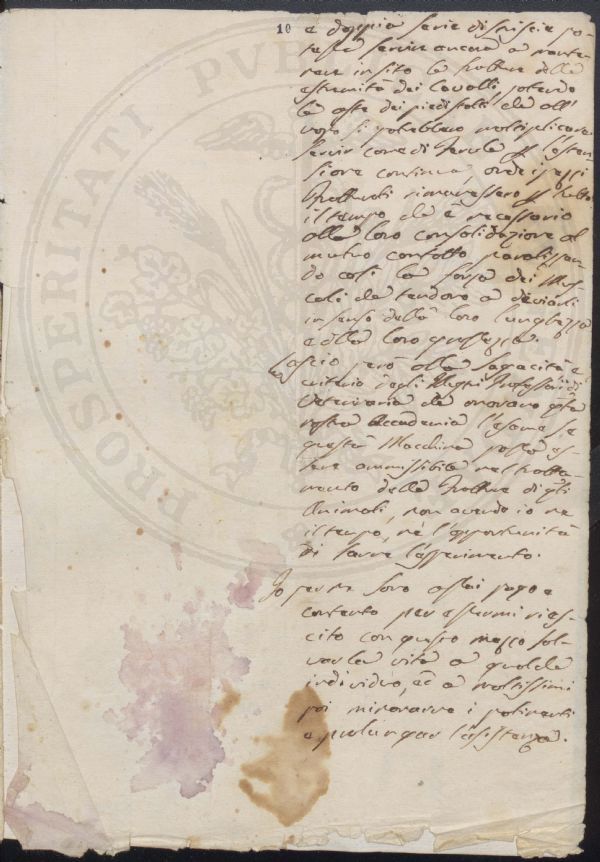 PROSPERITATI PUBLICAE
10
e doppia serie di striscie po-
tesse servire ancora a mante-
nere in sito le fratture delle
estremità dei Cavalli, potendo
le aste dei piedistalli che all'
uopo si potrebbero moltiplicare
servir come di ferule
sione continua, onde i pezzi
fratturati rimanessero
il tempo che è necessario
alla loro consolidazione al
mutuo contatto paralizzan-
do così la forza dei Mus-
coli che tendono a deviarli
in senso della loro lunghezza
e della loro grossezza.
Lascio però alla sagacità e
criterio degli Professori di
Veterinaria che onorano
vostra Accademia l'esame se
questa Macchina possa es-
sere ammissibile nel tratta-
mento delle fratture di
Animali, non avendo io ne
il tempo, ne l'opportunità
di farne l'esperimento.
Io per me sono assai pago e
contento per essermi ries-
cito con questo mezzo sal-
var la vita a qualche
individuo, ed a moltissimi
poi minorarne i patimenti
e prolungar l'esistenza.